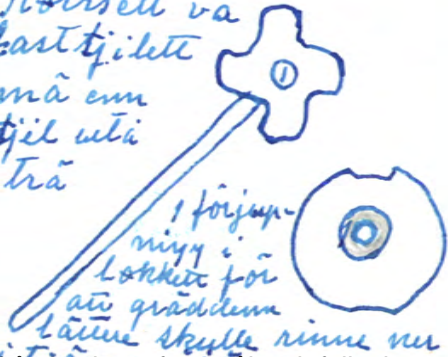 va
kasttjilett
må enn
tjil utå
trä
1
1 förjup-
ning i
lokket för
att gräddenn
lättere skulle rinne ner